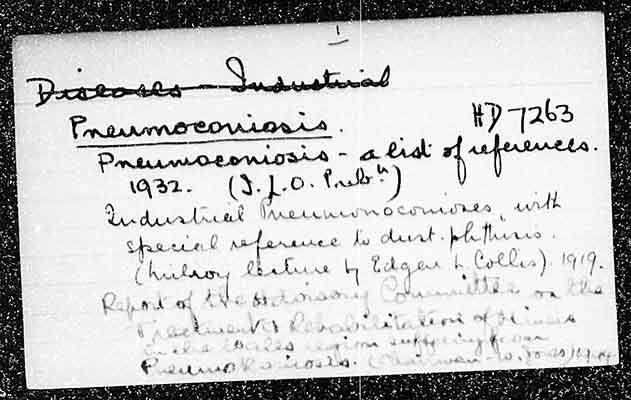 1
Diseases - Industrial
Pneumoconiosis. HD 7263
Pneumoconiosis - a list of references.
1932. (I.L.O. Pubn)
Industrial Pneumonoconioses, with
special reference to dust-phthisis.
(Milroy lecture by Edgar L Collis). 1919.
Report of the Advisory Committee on the
Treatment & Rehabilitation of Miners
in the Wales region suffering from
Pneumokoniosis. (Chairman - W.